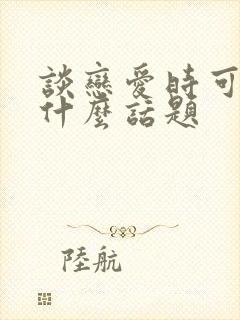 談戀愛時可
什麼話題
陸航